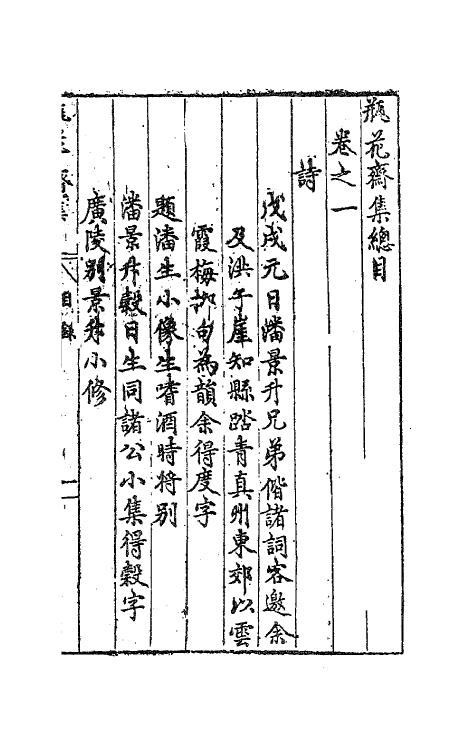 瓶花齋集總目
卷之一
詩
戊戌元日潘景升兄弟偕諸詞客邀余
及洪子崖知縣踏青真州東郊以雲
霞梅柳句為韻余得度字
題潘生小像生嗜酒時將別
潘景升穀日生同諸公小集得穀字
廣陵別景升小修
目錄 一